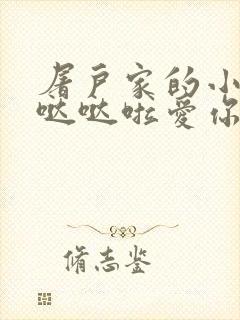 屠户家的小
哒哒啦爱你
脩志鉴